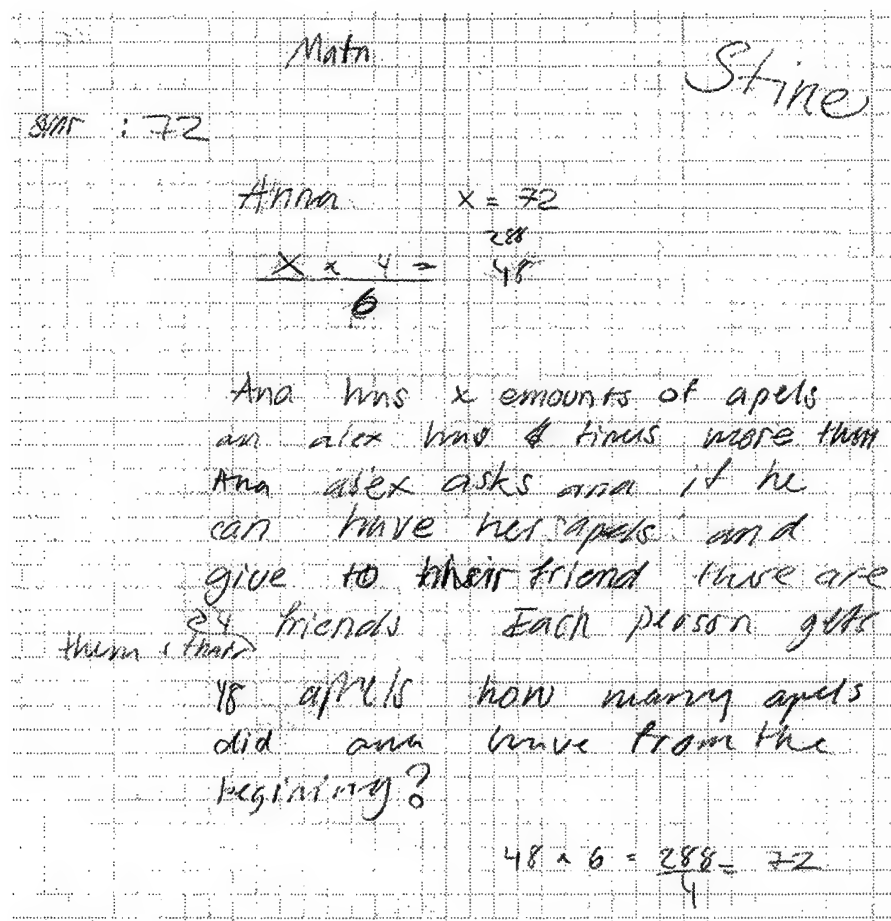 Math
Stine
: 72
Anna x = 72
288
X x 4 = 48
6
Ana has x emounts of apels
an alex has 4 timus more than
Ana alex asks ana if he
can have her apels and
give to their friend there are
4 friends Each person gets
them
48 apels how many apels
did ana have from the
begining?
48 x 6 = 288 = 72
4